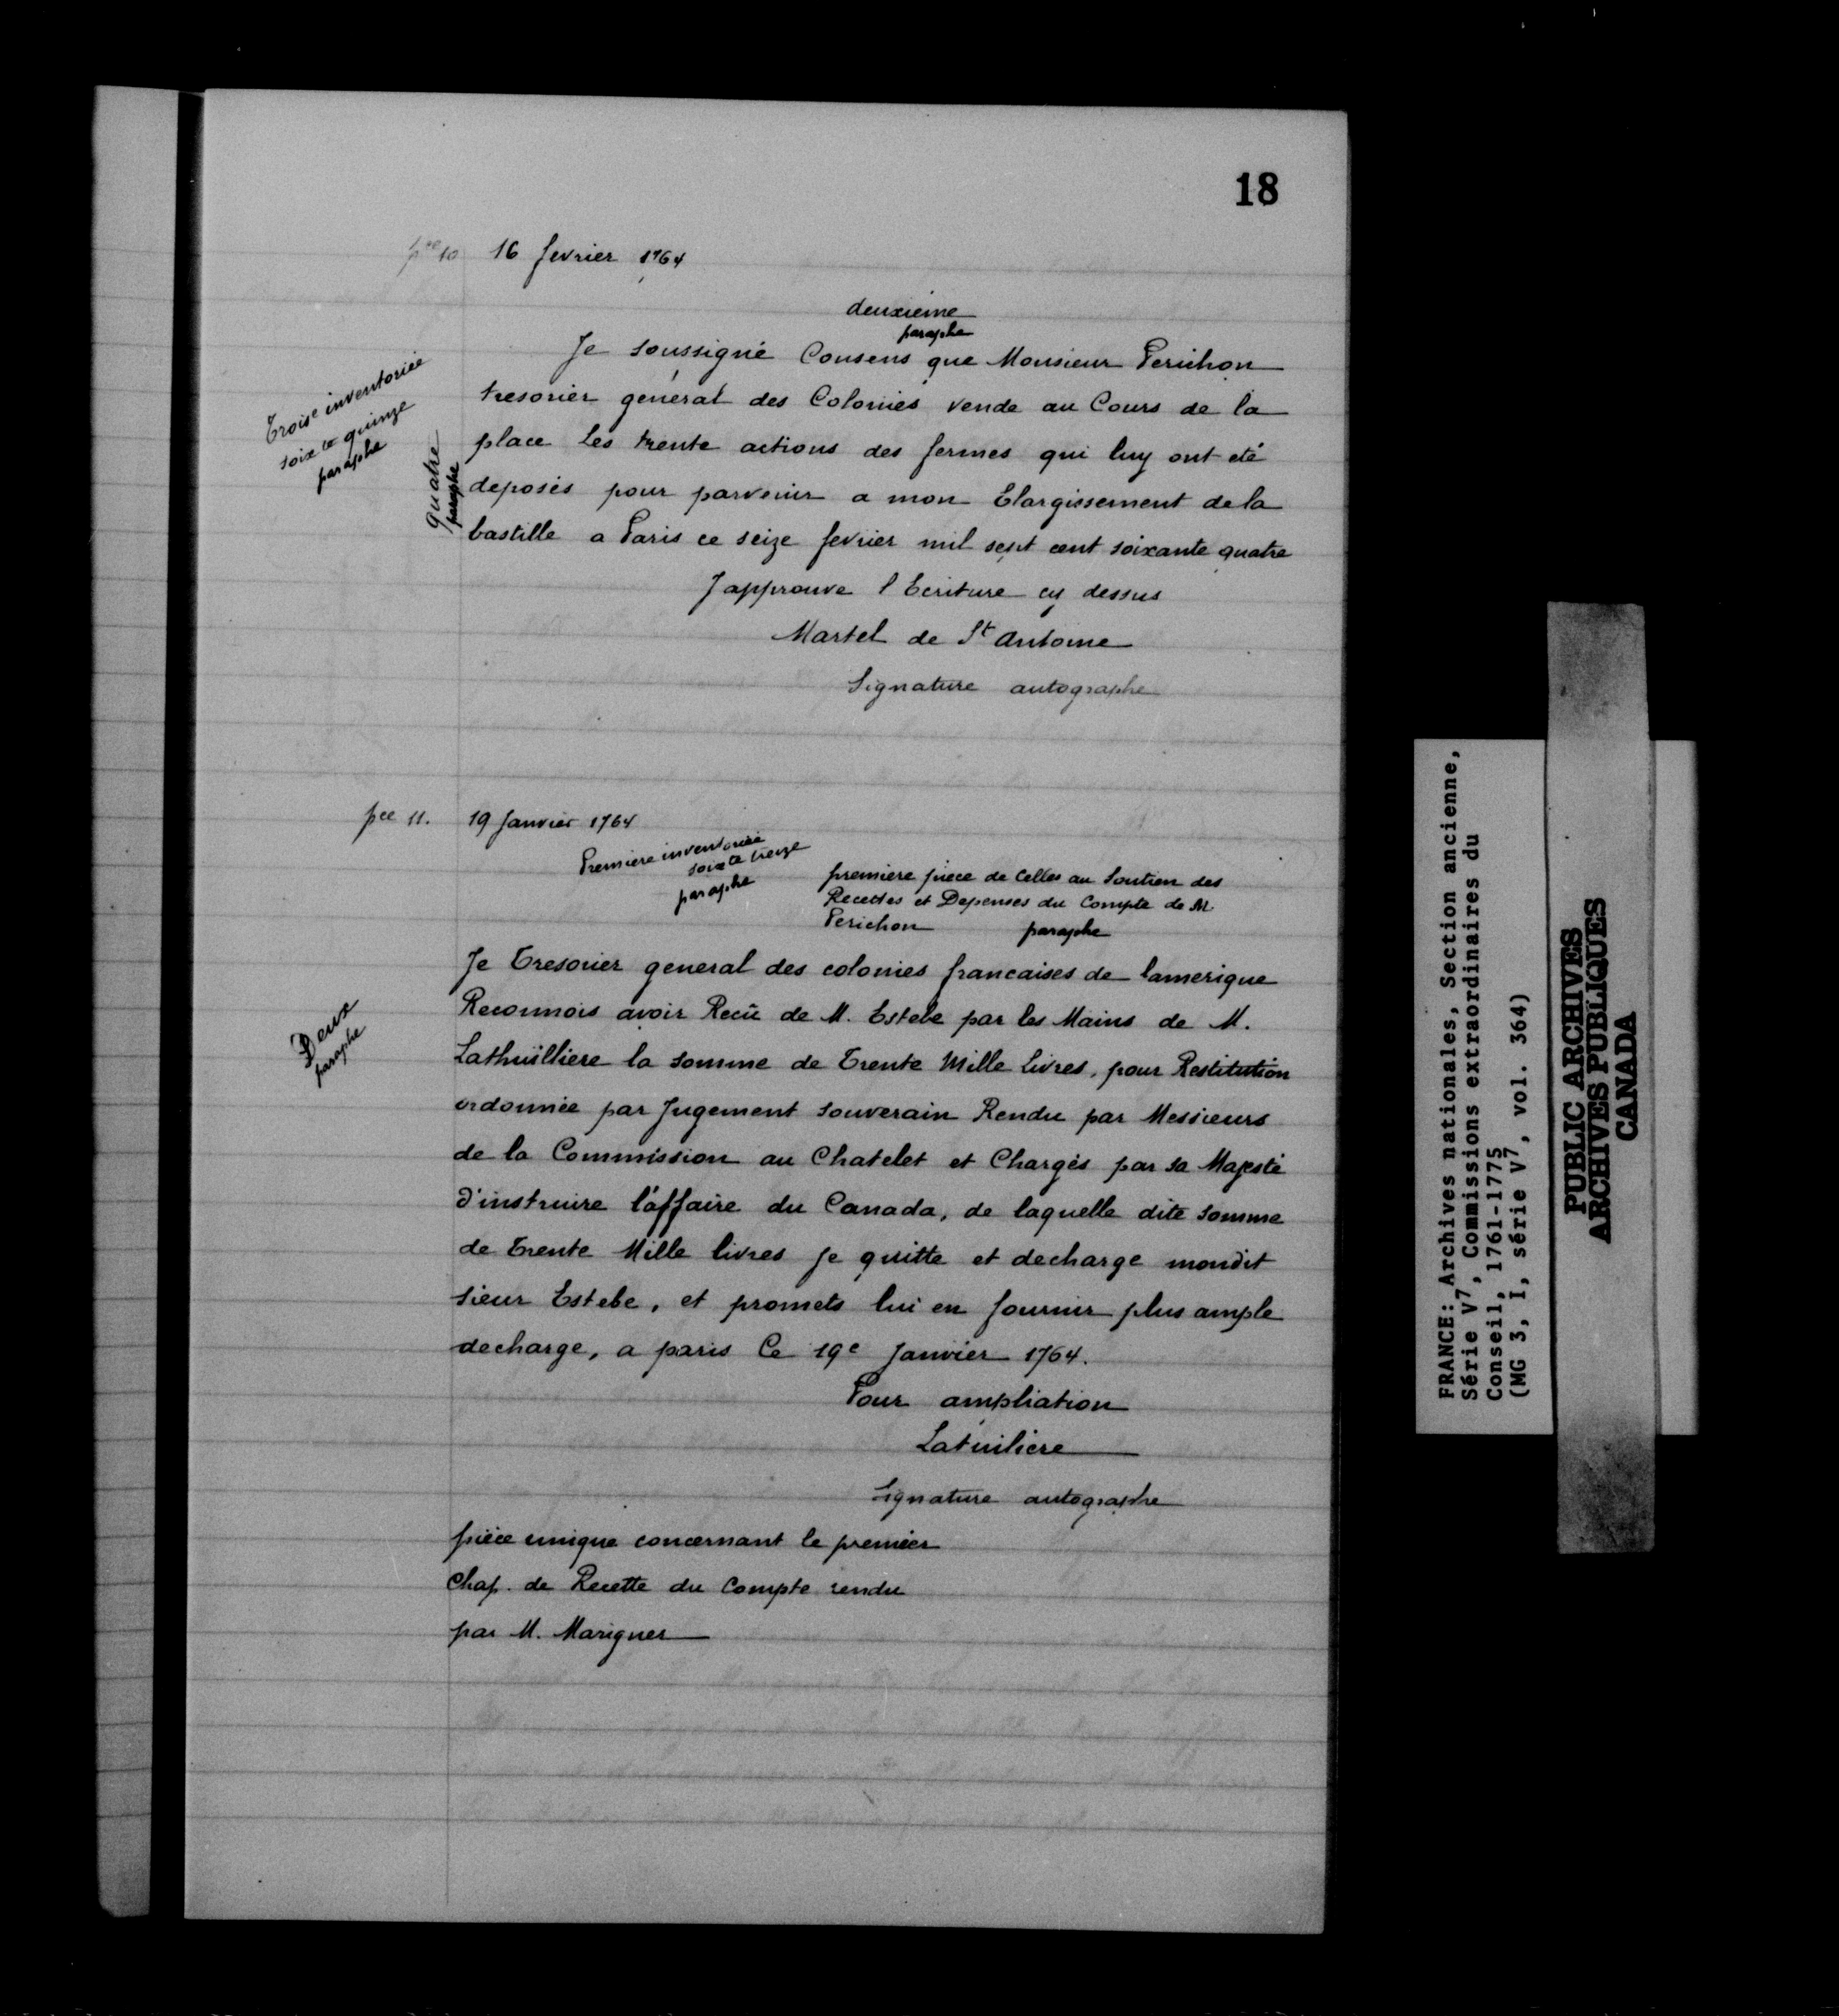 18
pce 10 16 fevrier 1764
deuxième
paraphe
Je soussigné Consens que Monsieur Perichon
tresorier général des Colonies vende au Cours de la
place Les trente actions des fermes qui luy ont eté
deposés pour parvenir a mon Elargissement de la
bastille a Paris ce seize fevrier mil sept cent soixante quatre
Japprouve l Ecriture cy dessus
Martel de St Antoine
Signature autographe
Troise inventoriée
soixte quinze
paraphe
quatre
paraphe
pce 11. 19 Janvier 1764
Premiere inventoriée
soixte treize
paraphe
première pièce de Celles au Soutien des
Recettes et Depenses du Compte de M.
Perichon paraphe
Je Tresorier general des colonies francaises de lamerique
Reconnois avoir Recû de M. Estebe par les Mains de M.
Lathuillière la somme de Trente Mille Livres, pour Restitution
ordonnée par Jugement souverain Rendu par Messieurs
de la Commission au Chatelet et Chargés par sa Majesté
d'instruire l'affaire du Canada, de laquelle dite somme
de trente Mille livres je quitte et decharge mondit
sieur Estebe, et promets lui en fournir plus ample
decharge, a paris Ce 19e Janvier 1764.
Pour ampliation
Latuilière
Signature autographe
Deux
paraphe
pièce unique concernant le premier
Chap. de Recette du Compte rendu
par M. Marignes
FRANCE: Archives nationales, Section ancienne,
Série V7, Commissions extraordinaires du
Conseil, 1761-1775
(MG 3, I, série V7, vol. 364)
PUBLIC ARCHIVES
ARCHIVES PUBLIQUES
CANADA